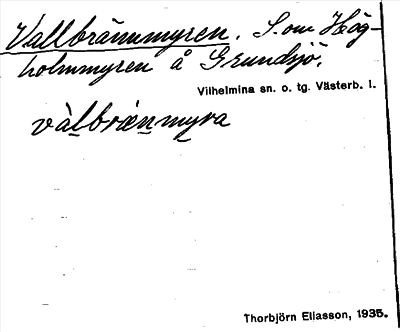 Vallbrännmyren. S. om Hög-
holmmyren å Grundsjö.
Vilhelmina sn. o. tg. Västerb. l.
vàlbrænmyra
Thorbjörn Eliasson, 1935.